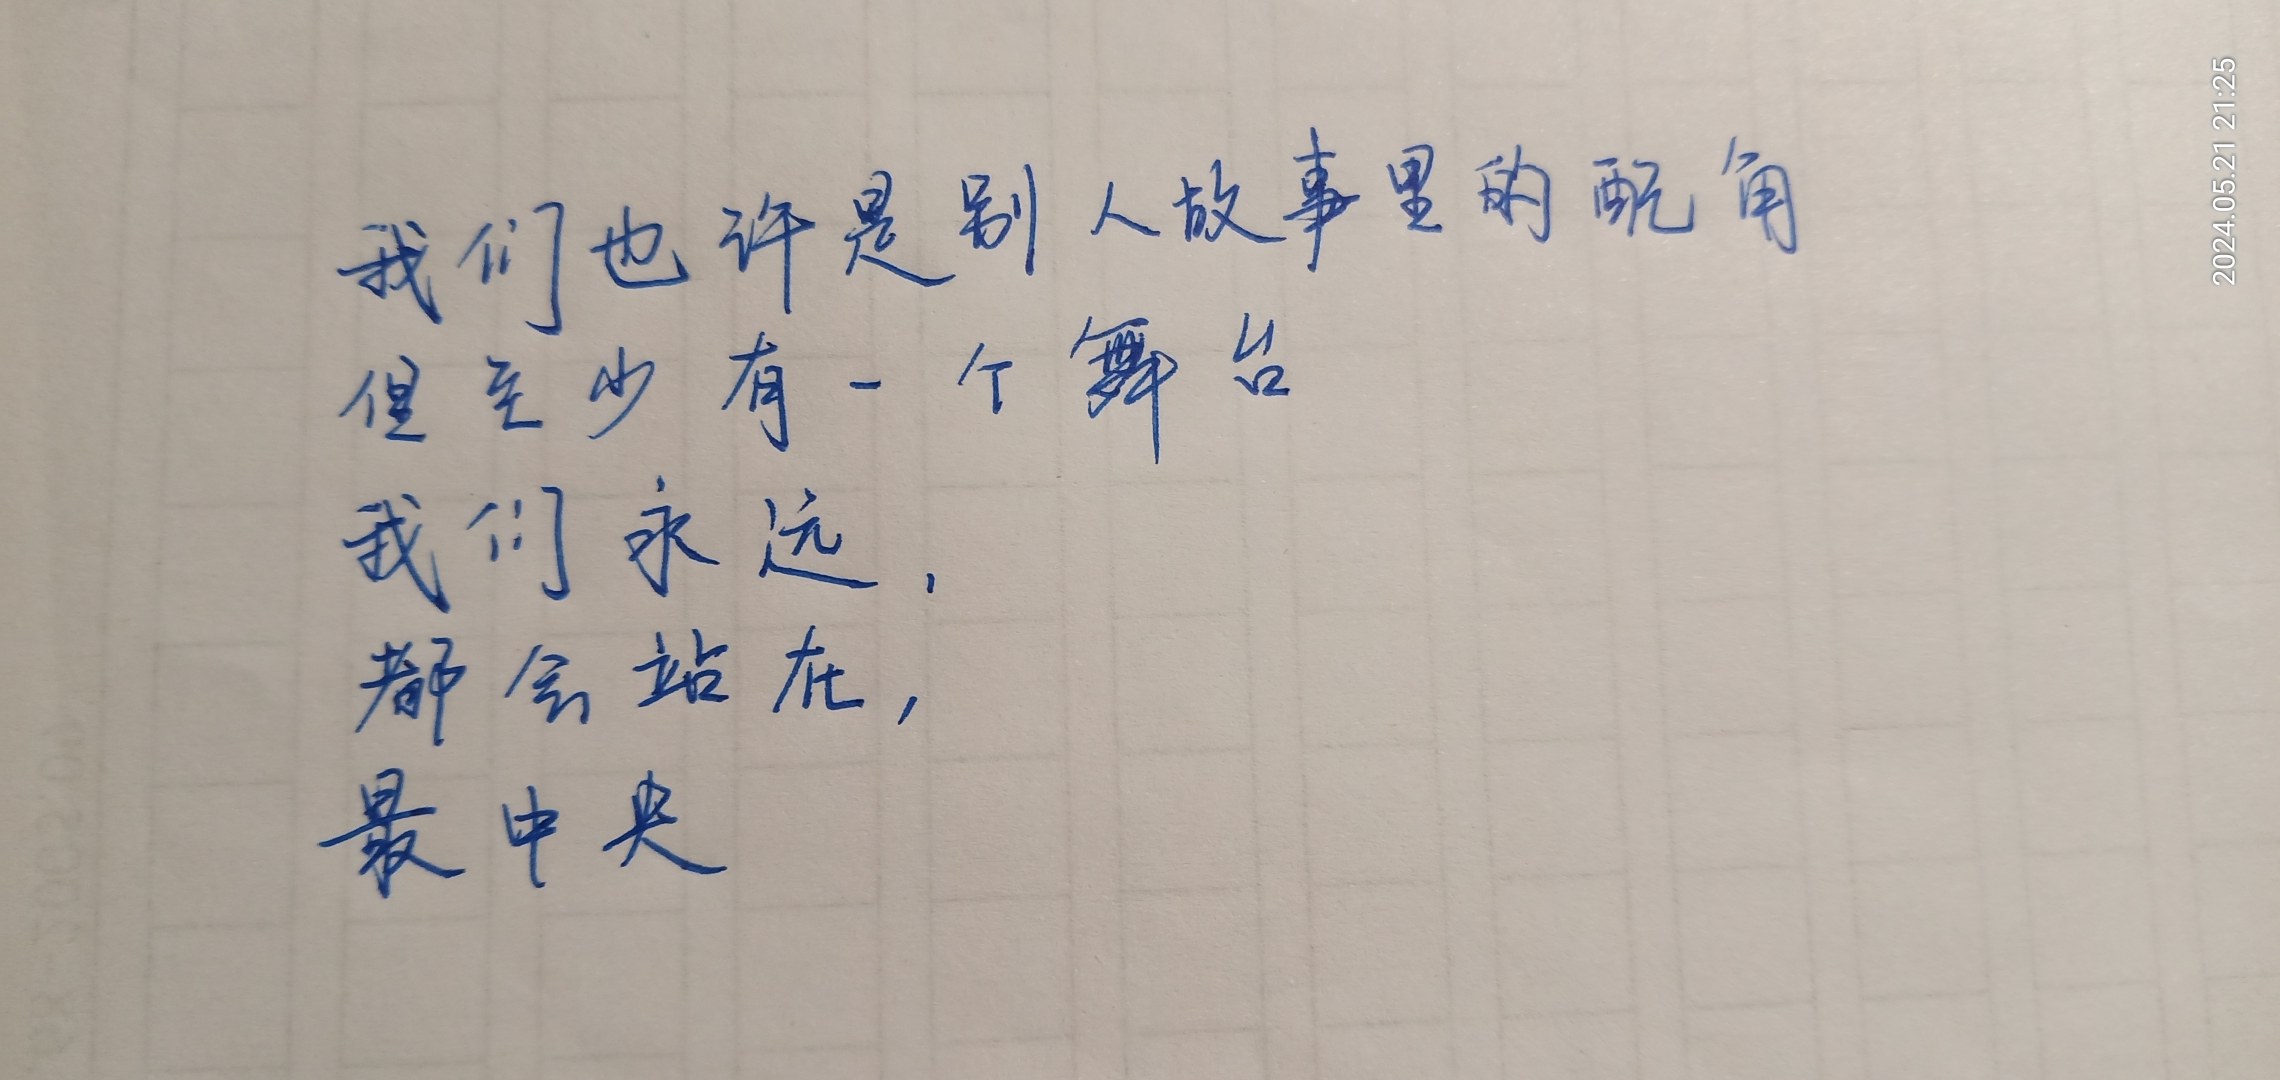 我们也许是别人故事里的配角
但至少有一个舞台
我们永远,
都会站在,
最中央
2024.05.21 21:25